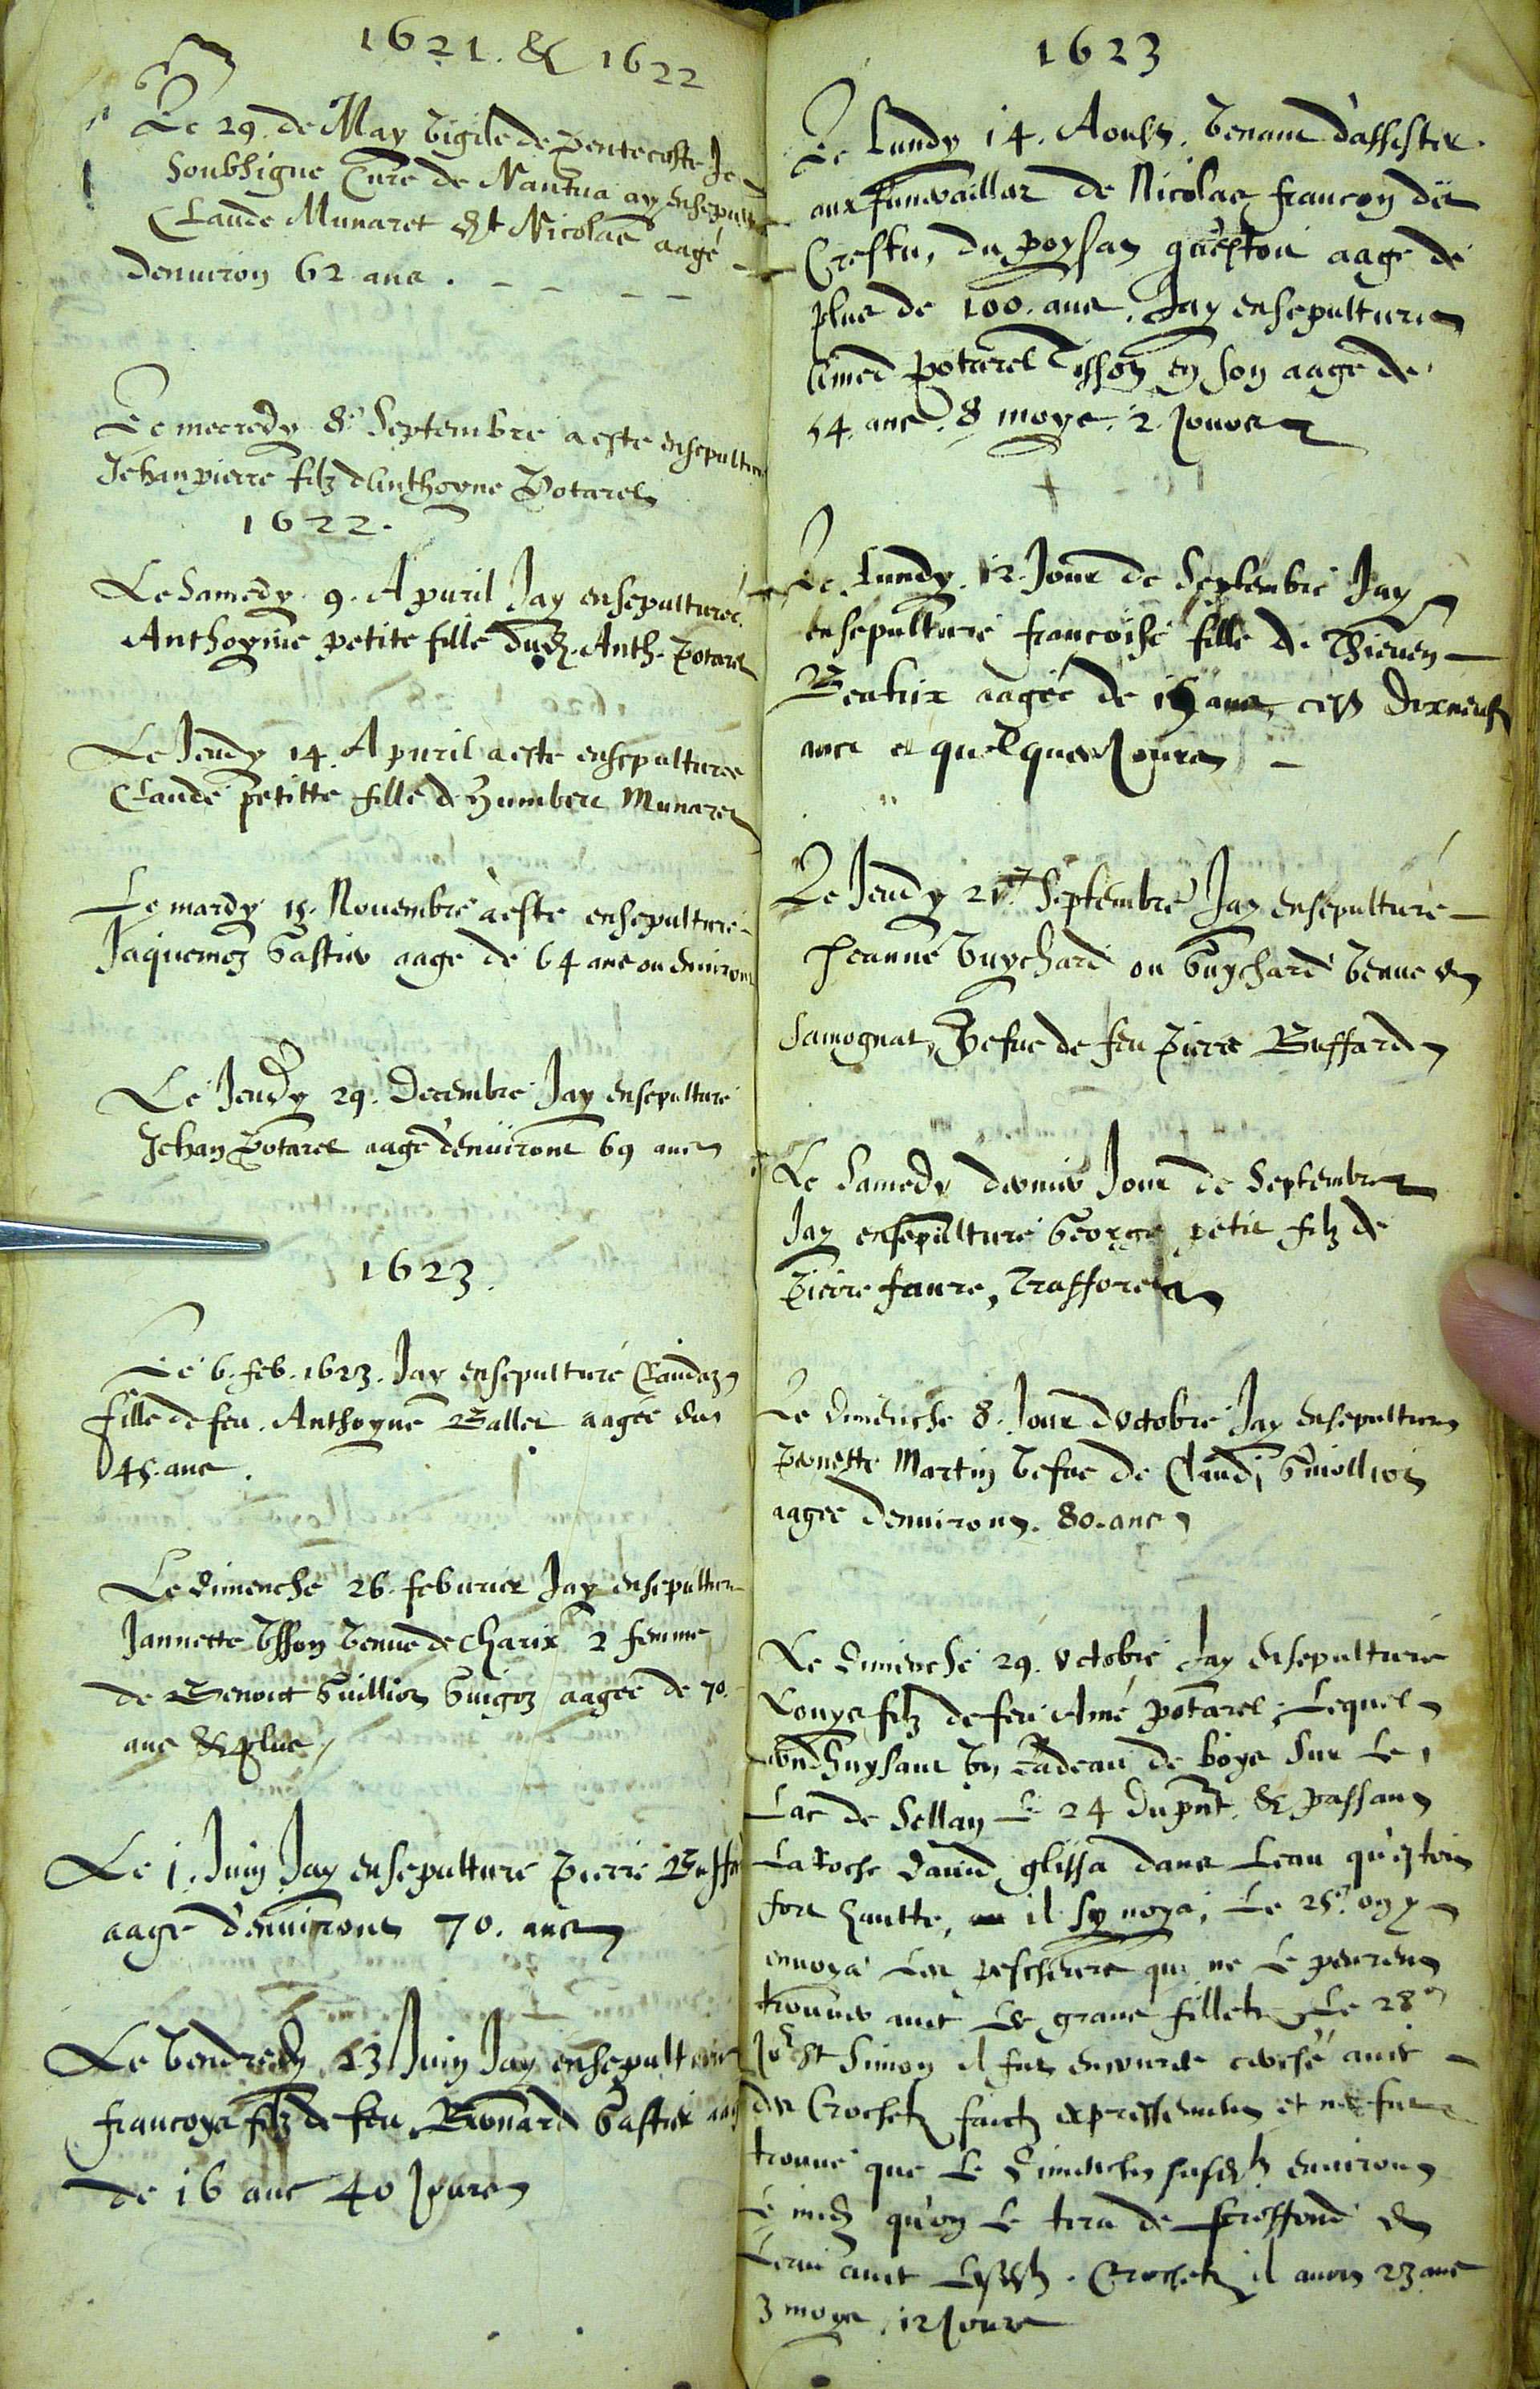 1621. & 1622
Le 29. de May Vigile de Pentecoste Je
Soubsigne Cure de Nantua ay ensepulture
Claude Munaret dit Nicolas aagé
denuiron 62 ans . - - - -
Le mecredy 8. Septembre a este ensepulture
Jehan pierre filz d Anthoyne Potarel
1622.
Le Samedy. 9. Apuril Jay ensepulturée
Anthoyne petite fille dud. Anth. Potarel
Le Jeudy 14. Apuril a este ensepulturée
Claude petitte fille de Humbert Munaret
Le mardy 15. Nouembre a este ensepulturé
Jaquemoz Gastier aage de 64 ans ou enuiron
Le Jeudy 29. Decembre Jay ensepulture
Jehan Potarel aagé denuiront 69 ans
1623.
Le 6. feb. 1623. Jay ensepulturé Claudaz
fille de feu. Anthoyne Ballet aagée de
45. ans.
Le dimenche 26. feburier Jay ensepulture
Jannette Bsson Venue de Charix 2 femme
de Benoict Guillion Guigoz aagée de 70.
ans & plus
Le 1. Juin Jay ensepulture Pierre Buffa
aagé denuirons 70. ans
Le Vendredy 23 Juin Jay ensepulture
francoys filz de feu Bernard Gastier aag
de 16 ans 40 Jours
1623
Le Lundy 14. Aoust. Venant d'assister
aux funerailles de Nicolas francon dit
Crestu, du poysat qu'estoit aagé de
plus de 100. ans. Jay ensepulturé
Amed Potarel Tisson en son aage de
54. ans. 8 moys. 2. Jours
Le Lundy. 12. Jour de Septembre Jay
ensepulturé francoise fille de Thieuen
Beatrix aagée de 19 ans, cest dixneuf
ans et quelques Jours
Le Jeudy 21. Septembre Jay ensepulturé
Jeanne Vuychard ou Guychard Venue de
Samognat, Vefue de feu Pierre Buffard
Le Samedy dernier Jour de Septembre
Jay ensepulturé George petit filz de
Pierre faure, Trafforet
Le dimenche 8. Jour d'octobre Jay ensepulture
Pernette Martin Vefue de Claude Guillion
aagee denuirons. 80. ans
Le dimenche 29. octobre Jay ensepulturé
Louys filz de feu Amé Potarel, Lequel
conduysant Vn Radeau de boys sur le
Lac de Sellan Le 24 du pnt. & passant
La Roche Dauid glissa dans Leau qu'estoit
fort haulte, il sy noya, Le 25. on y
enuoya Les peschers qui ne Le peurent
trouuer auec Les grans filletz, Le 28
Jor St Simon il fut encores cerché auec
des Crochetz faictz expressement et ne fut
trouué que Le Dimenche susd. enuiron
Le midy qu'on Le tira de profond de
Leau auec Lesd. Crochetz il auoit 23 ans
3 moys, 12 Jours